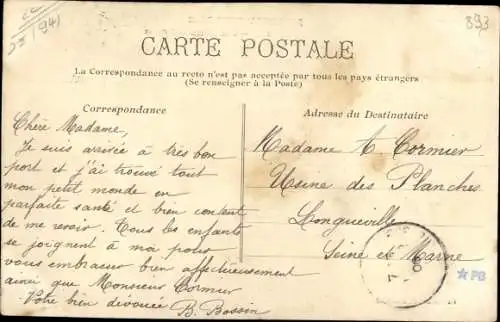 (94)
893
CARTE POSTALE
La Correspondance au recto n'est pas acceptée par tous les pays étrangers
(Se renseigner à la Poste)
Correspondance
Chère Madame,
Je suis arrivée à très bon
port et j'ai trouvé tout
mon petit monde en
parfaite santé et bien content
de me revoir. Tous les enfants
se joignent à moi pour
vous embrasser bien affectueusement
ainsi que Monsieur Cormier
Votre bien dévouée B. Bossin
Adresse du Destinataire
Madame A. Cormier
Usine des Planches
Longueville
Seine et Marne
PB